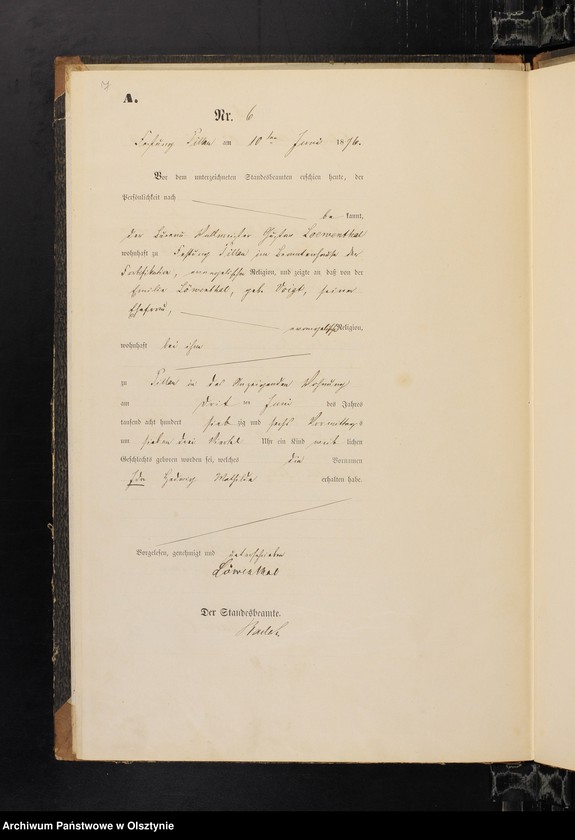 A.
Nr. 6
Festung Pillau am 10ten Juni 1876.
Vor dem unterzeichneten Standesbeamten erschien heute, der
Persönlichkeit nach
be kannt,
der Bureau Wallmeister Gustav Loewenthal
wohnhaft zu Festung Pillau im Beamtenhause der
Fortifikation, evangelischer Religion, und zeigte an, daß von der
Emilie Löwenthal, geb. Voigt, seiner
Ehefrau,
evangelischer Religion,
wohnhaft bei ihm
zu Pillau in des Anzeigenden Wohnung
am Juni des Jahres
tausend acht hundert sieb zig und sechs Vormittags
um sieben drei Viertel Uhr ein Kind weib lichen
Geschlechts geboren worden sei, welches die Vornamen
Ida Hedwig Mathilde erhalten habe.
Vorgelesen, genehmigt und unterschrieben
Löwenthal
Der Standesbeamte.
Archiwum Państwowe w Olsztynie